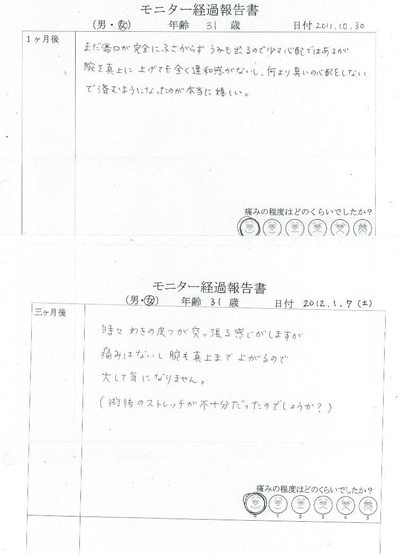 モニター経過報告書
(男・女) 年齢 31 歳 日付 2011.10.30
1ヶ月後
まだ傷口が完全にふさがらず うみも出るので少々心配ではあるが
腕を真上に上げても全く違和感がないし、何より臭いの心配をしない
で済むようになったのが本当に嬉しい。
痛みの程度はどのくらいでしたか?
モニター経過報告書
(男・女) 年齢 31 歳 日付 2012.1.7(土)
三ヶ月後
時々 わきの皮フが突っ張る感じがしますが
痛みはないし 腕も真上まで上がるので
大して気になりません。
(術後のストレッチが不十分だったのでしょうか?)
痛みの程度はどのくらいでしたか?
0 1 2 3 4 5